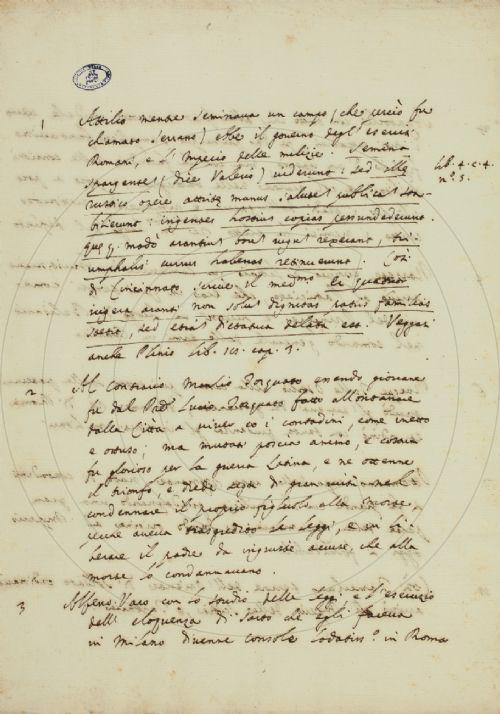 1 Attilio mentre seminava un campo (che perciò fu
chiamato Serrano) ebbe il governo degl'eserciti
Romani, e l'Imperio delle milizie. Semina
spargentes (dice Valerio) viderunt: sed illae
rustico opere attritae manus salutem publicam sta-
bilierunt: ingentes hostium copias pessundederunt.
quaeq. modò arantium boum jugum rexerant, tri-
umphalis currus habenas retinuerunt. Così
di Cincinnato scrive il medmo
jugera aranti non solũ dignitas patris familias
constitit, sed etiã dictatura delata est. Veggasi
anche Plinio lib. cap. 3.
lib. 4. c. 4.
n.° 5.
2 Al contrario Manlio Torquato essendo giovane
fu dal Pad.e Lucio Torquato fatto allontanare
dalla Città a viver co i contadini, come inetto
e ottuso; ma mutati poscia animo, e costumi
fu glorioso per la guerra Latina, e ne ottenne
il trionfo, e diede
condennare il proprio figliuolo alla morte,
perche aveva trasgredito le leggi, e in li-
berare il padre da ingiuste accuse, che alla
morte lo condannavano.
3 Alfeno Varo con lo studio delle leggi, e l'esercizio
dell'eloquenza di Sarto che egli faceva
in Milano divenne console lodatiss.° in Roma